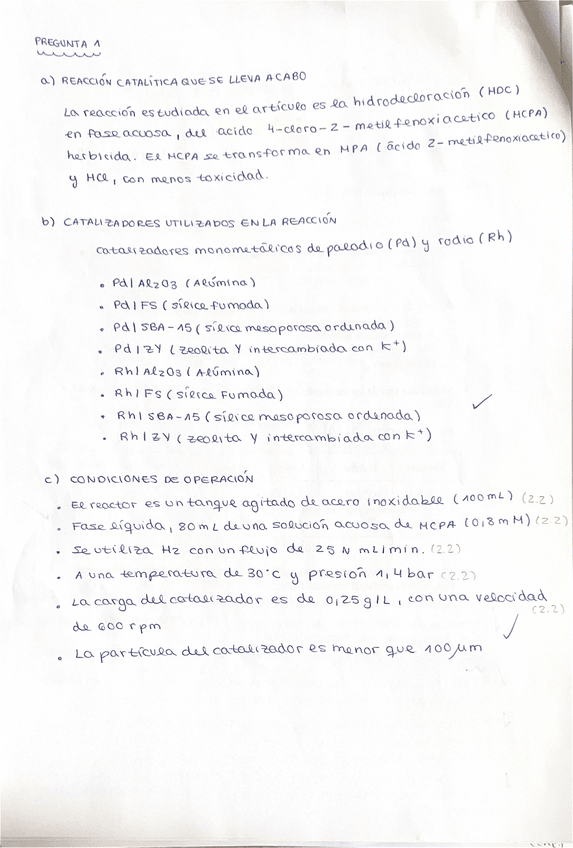 PREGUNTA 1
a) REACCIÓN CATALÍTICA QUE SE LLEVA A CABO
La reacción estudiada en el artículo es la hidrodecloración (HDC)
en fase acuosa, del acido 4-cloro-2-metilfenoxiacetico (MCPA)
herbicida. El MCPA se transforma en MPA (ácido 2-metilfenoxiacetico)
y HCl, con menos toxicidad.
b) CATALIZADORES UTILIZADOS EN LA REACCIÓN
catalizadores monometálicos de paladio (Pd) y rodio (Rh)
• Pd/Al2O3 (Alúmina)
• Pd/FS (sílice fumada)
• Pd/SBA-15 (sílice mesoporosa ordenada)
• Pd/ZY (zeolita Y intercambiada con K+)
• Rh/Al2O3 (Alúmina)
• Rh/FS (sílice Fumada)
• Rh/SBA-15 (sílice mesoporosa ordenada)
• Rh/ZY (zeolita Y intercambiada con K+)
c) CONDICIONES DE OPERACIÓN
• El reactor es un tanque agitado de acero inoxidable (100mL) (2.2)
• Fase líquida, 80 mL de una solución acuosa de MCPA (0,8 mM) (2.2)
• Se utiliza H2 con un flujo de 25 N mL/min. (2.2)
• A una temperatura de 30°C y presión 1,4 bar (2.2)
• La carga del catalizador es de 0,25 g/L, con una velocidad
de 600 rpm (2.2)
• La partícula del catalizador es menor que 100 µm